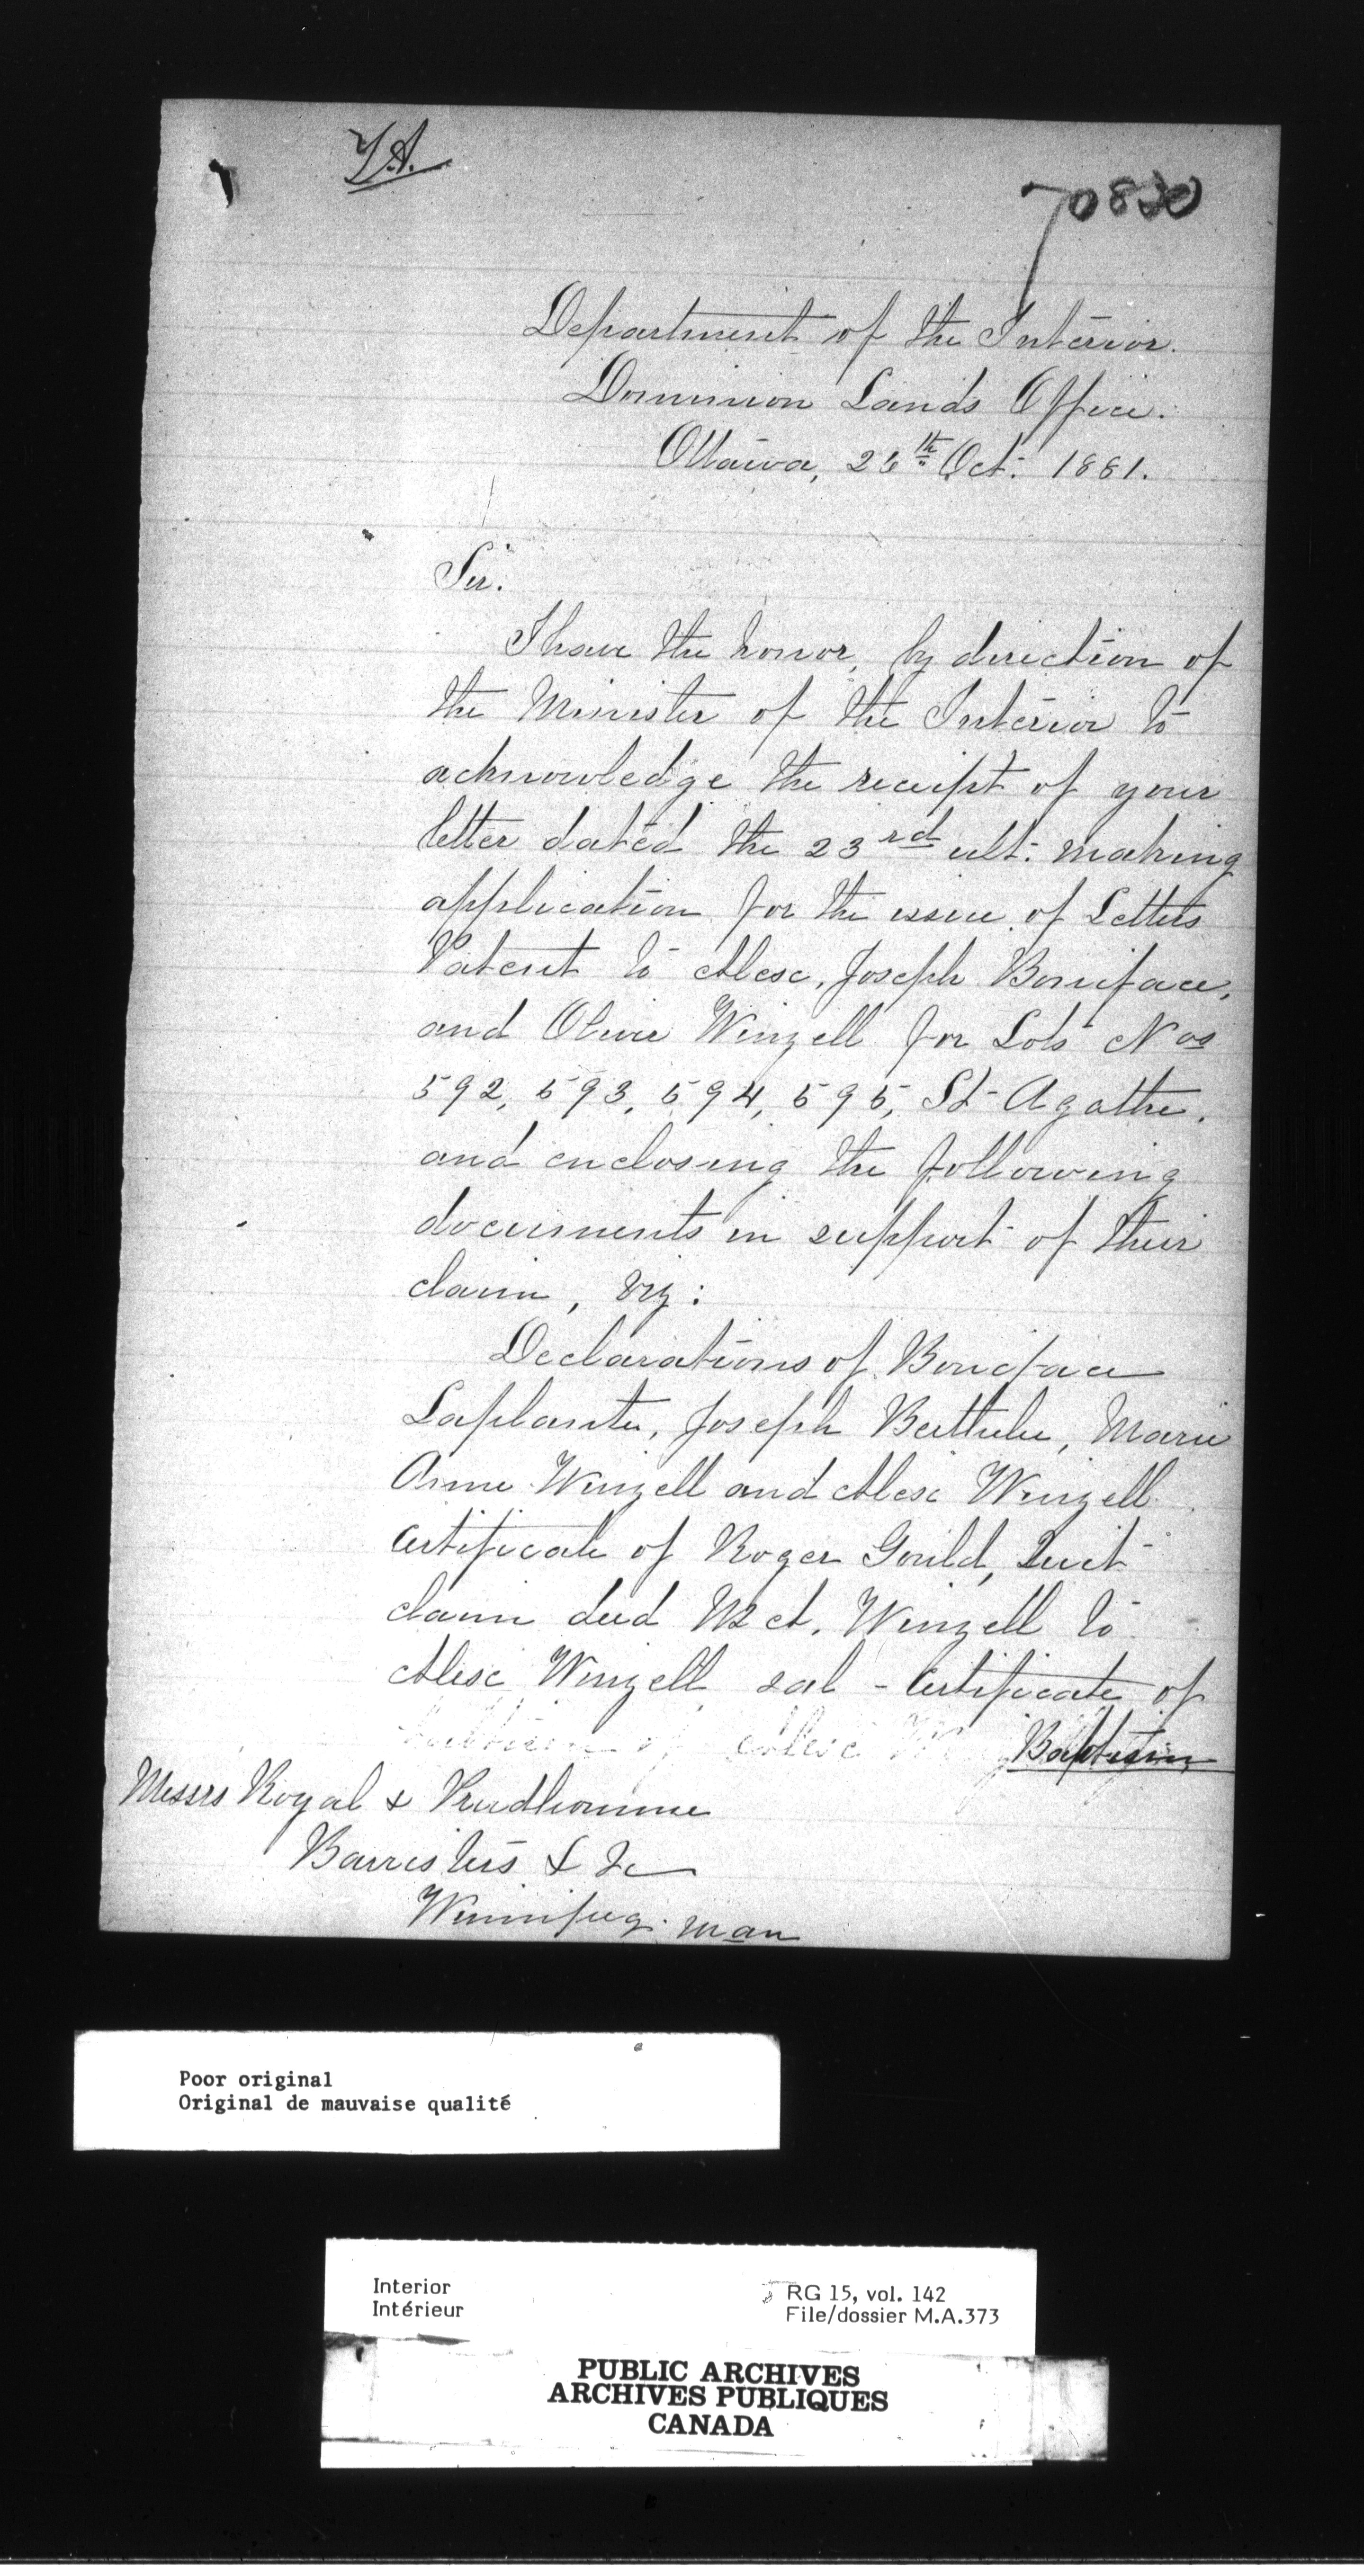 Y.A.
70830
Department of the Interior.
Dominion Lands Office.
Ottawa, 26th Oct. 1881.
Sir.
I have the honor, by direction of
the Minister of the Interior to
acknowledge the receipt of your
letter dated the 23rd ult. making
application for the issue of Letters
Patent to Alexe, Joseph Boniface,
and Olivir Winzell for Lots Nos
592, 593, 594, 595, St. Agathe.
and enclosing the following
documents in support of their
claim, viz:
Declarations of Boniface
Laplante, Joseph Berthelet, Marie
Anne Winzell and Alexe Winzell
Certificate of Roger Gould, Quit
claim deed M A. Winzell to
Alexe Winzell et al - Certificate of
Baptism
Messrs Royal & Prudhomme
Barristers & &c
Winnipeg. Man
Poor original
Original de mauvaise qualité
Interior
Intérieur
RG 15, vol. 142
File/dossier M.A.373
PUBLIC ARCHIVES
ARCHIVES PUBLIQUES
CANADA